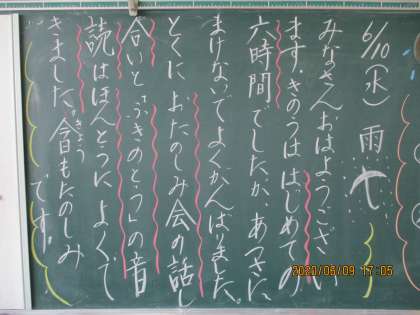 6/10(水) 雨
みなさんおはようござい
ます。きのうははじめての
六時間でしたが、あつさに
まけないでよくがんばりました。
とくに おたのしみ会の話し
合いと「ふきのとう」の音
読はほんとうによくで
きました。今日もたのしみ
きょう
です。
2020/06/09 17:05